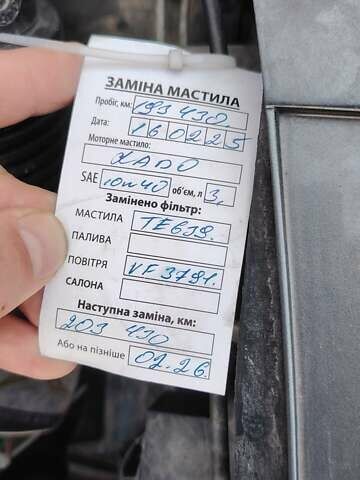 ЗАМІНА МАСТИЛА
Пробіг, км: 193 430
Дата: 160225
Моторне мастило:
XADO
SAE 10w40 об'єм, л 3,
Замінено фільтр:
МАСТИЛА TF 639.
ПАЛИВА
ПОВІТРЯ VF 3791.
САЛОНА
Наступна заміна, км:
203 430
Або на пізніше 02.26.